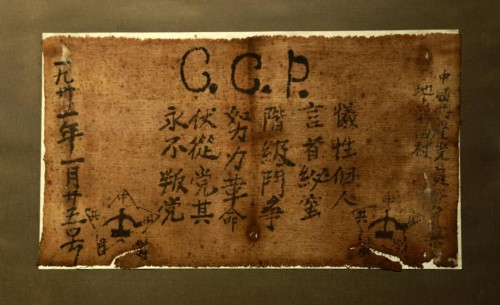 C.C.P.
中國共産党員
地点 田村
犧牲個人
言首秘蜜
階級鬥争
努力革命
伏從党其
永不叛党
一九卅一年一月廿五号